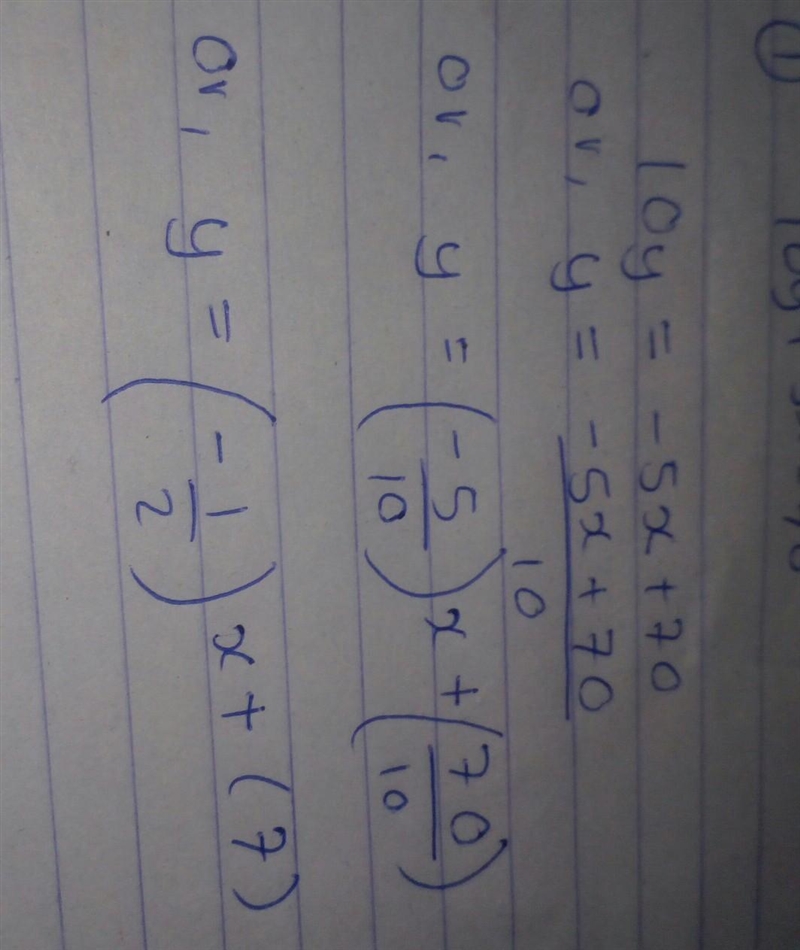 ①
10y = -5x + 70
or, y = \frac{-5x + 70}{10}
or, y = \left(\frac{-5}{10}\right) x + \left(\frac{70}{10}\right)
or, y = \left(\frac{-1}{2}\right) x + (7)